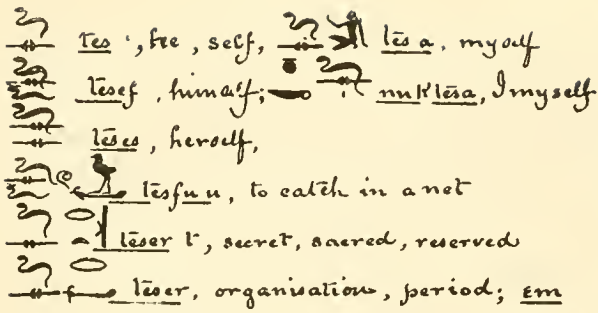 tes, he, self, tēs a, myself
tēsef, himself; nuk tēsa, I myself
tēses, herself,
tēsfuu, to catch in a net
tēser t, secret, sacred, reserved
tēser, organisation, period; em